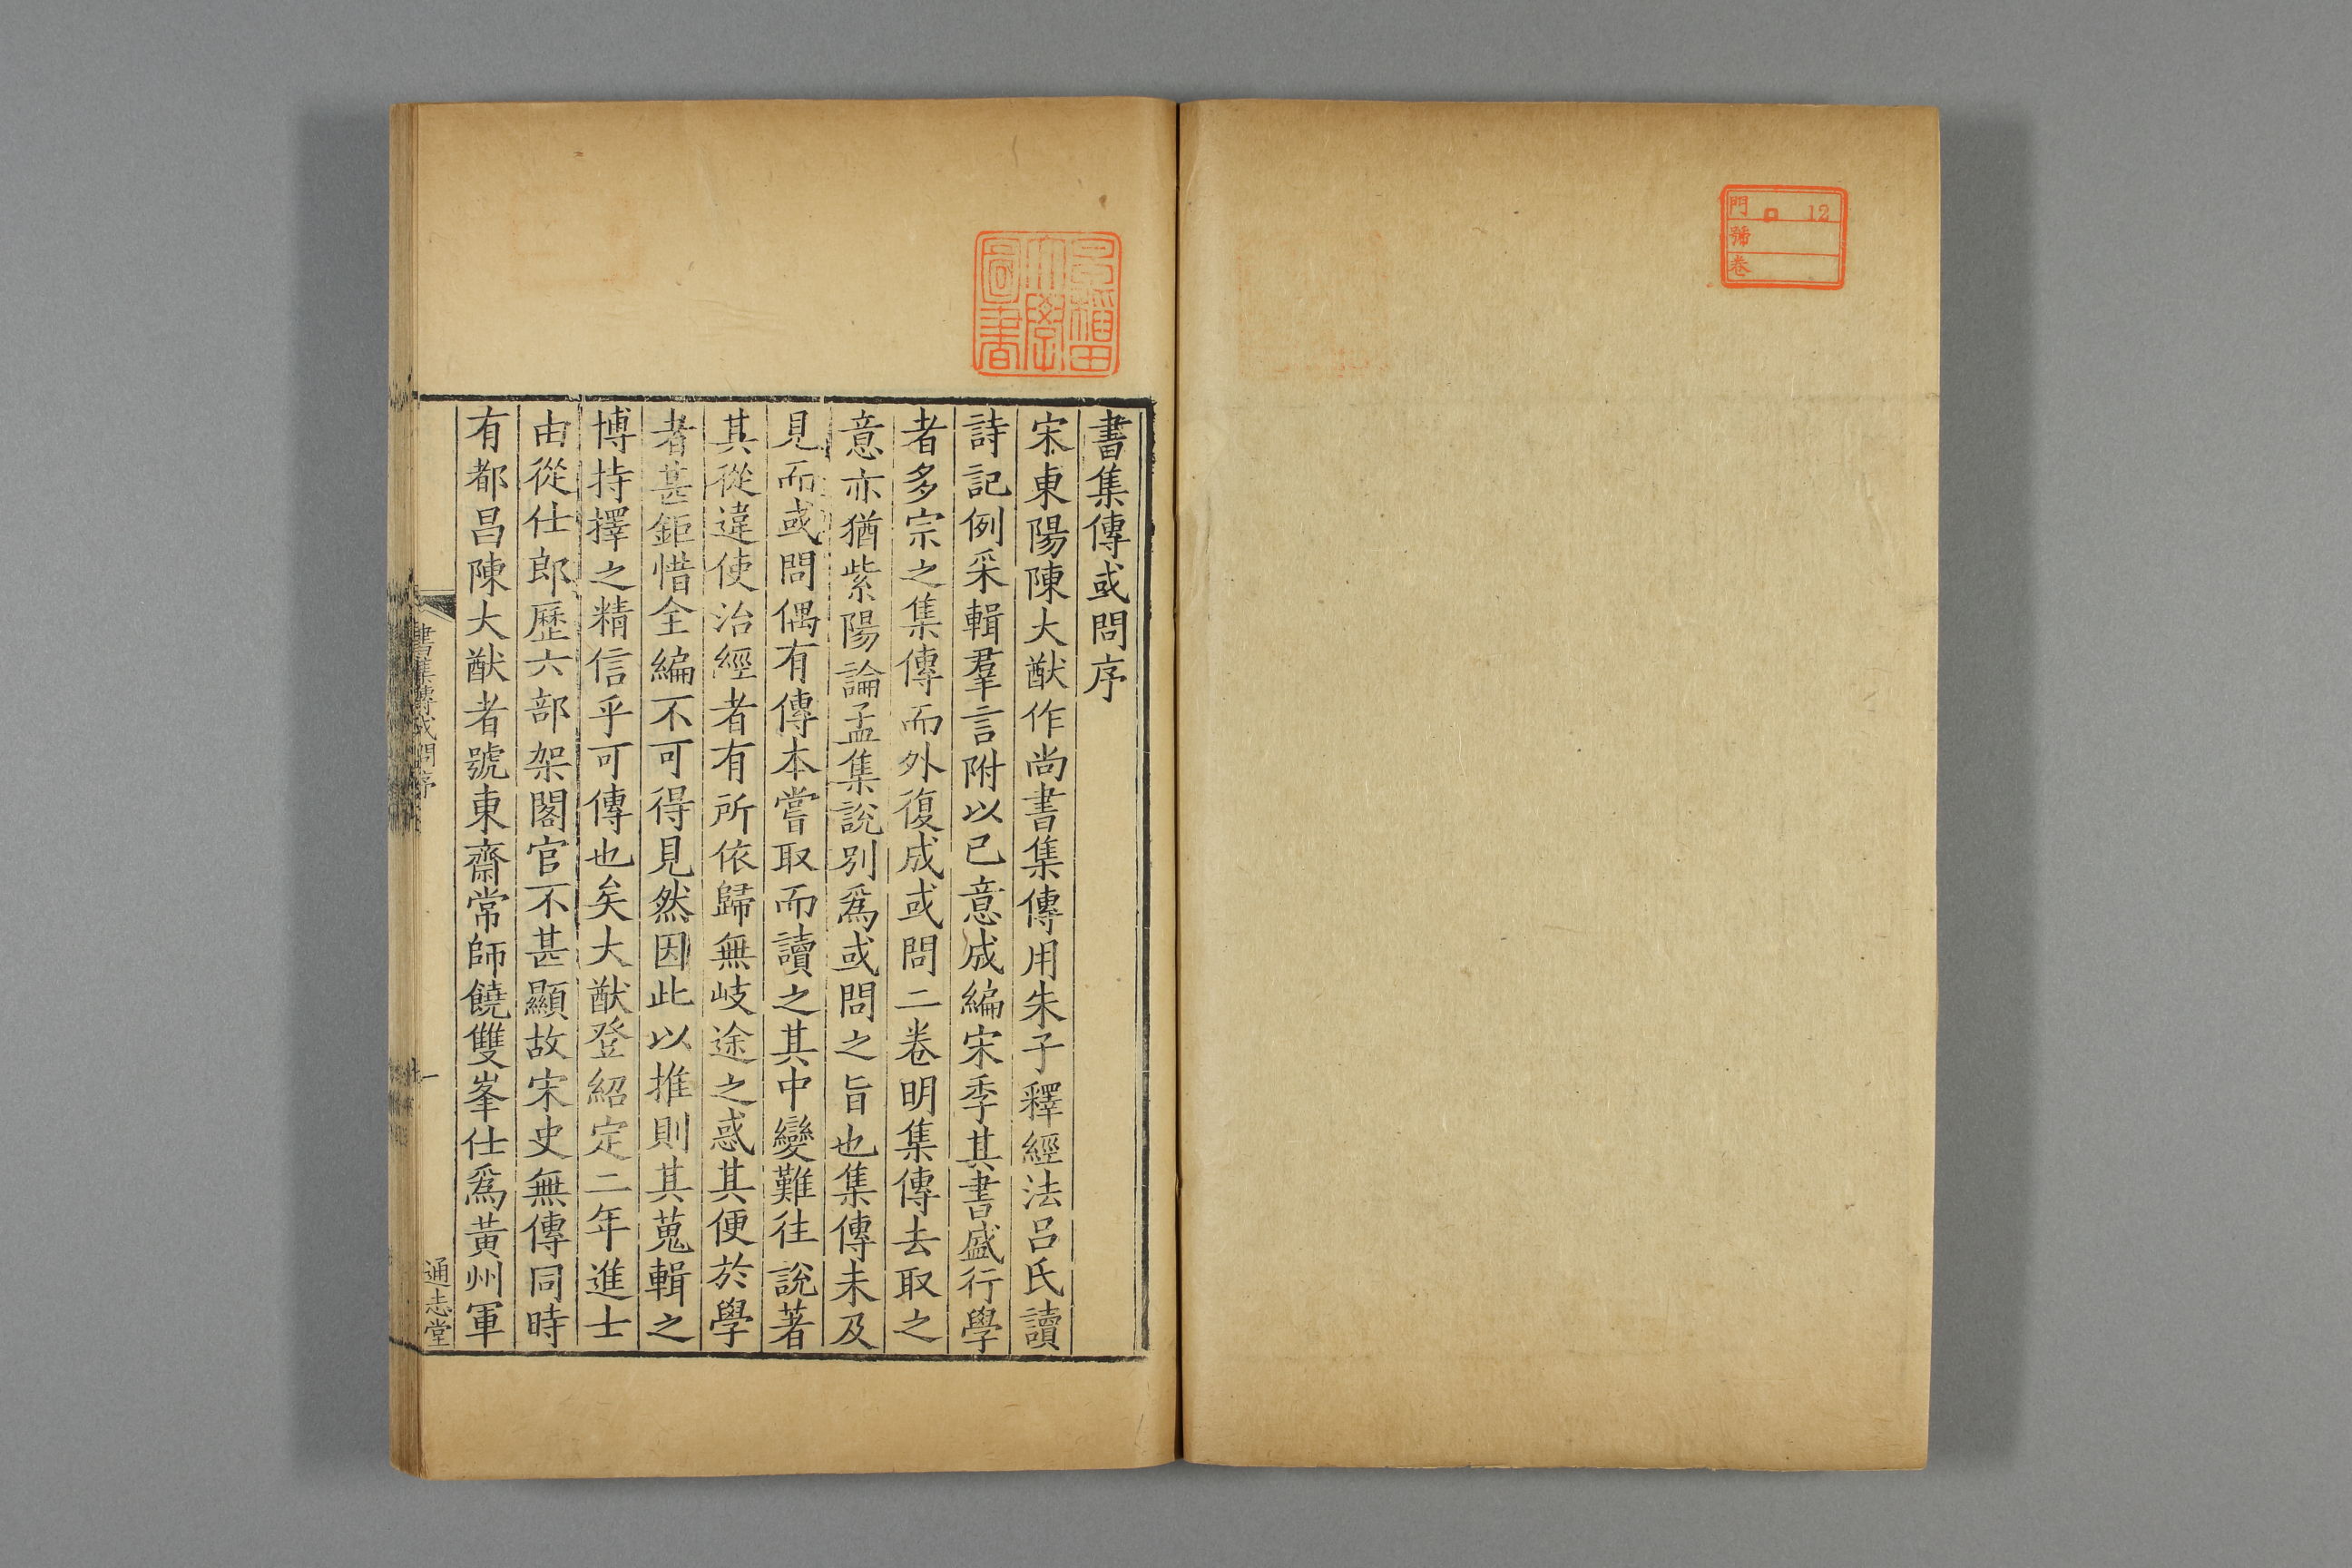 門 12
號
卷
早稲田
大學
圖書
書集傳或問序
宋東陽陳大猷作尚書集傳用朱子釋經法呂氏讀
詩記例采輯羣言附以已意成編宋季其書盛行學
者多宗之集傳而外復成或問二卷明集傳去取之
意亦猶紫陽論孟集說別爲或問之旨也集傳未及
見而或問偶有傳本嘗取而讀之其中變難往說著
其從違使治經者有所依歸無岐途之惑其便於學
者甚鉅惜全編不可得見然因此以推則其蒐輯之
博持擇之精信乎可傳也矣大猷登紹定二年進士
由從仕郎歷六部架閣官不甚顯故宋史無傳同時
有都昌陳大猷者號東齋常師饒雙峯仕爲黃州軍
書集傳或問序
一
通志堂